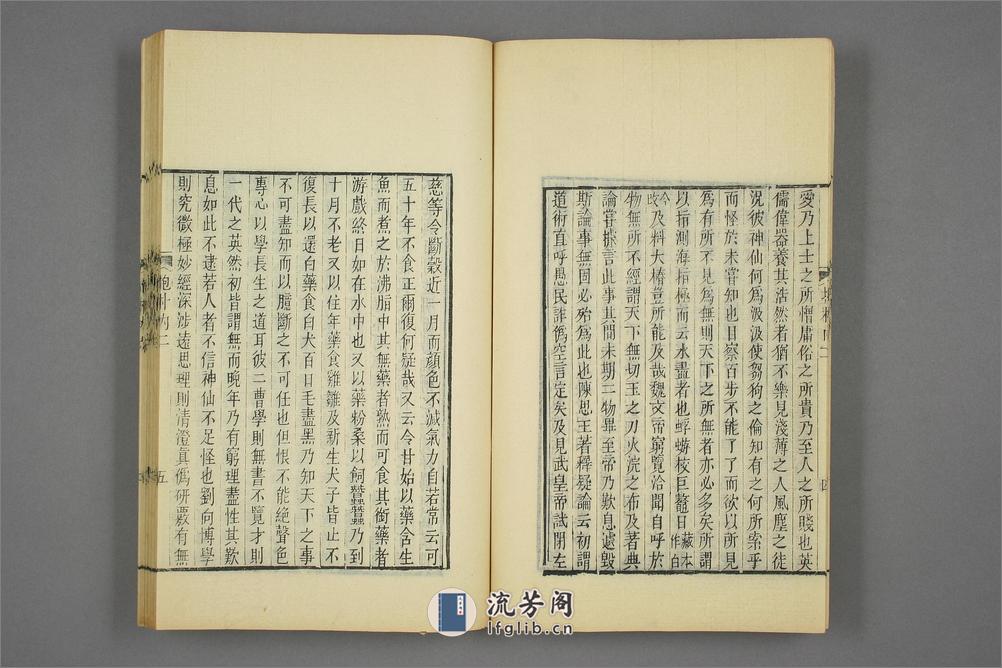 愛乃上士之所憎庸俗之所貴乃至人之所賤也英
儒偉器養其浩然者猶不樂見淺薄之人風塵之徒
況彼神仙何爲汲汲使芻狗之倫知有之何所索乎
而怪於未嘗知也目察百步不能了了而欲以所見
爲有所不見爲無則天下之所無者亦必多矣所謂
以指測海指極而云水盡者也蜉蝣校巨鼇日藏本作白
今改及料大椿豈所能及哉魏文帝窮覽洽聞自呼於
物無所不經謂天下無切玉之刀火浣之布及著典
論嘗據言此事其間未期二物畢至帝乃歎息遽毀
斯論事無固必殆爲此也陳思王著釋疑論云初謂
道術直呼愚民詐僞空言定矣及見武皇帝試閉左
慈等令斷穀近一月而顏色不減氣力自若常云可
五十年不食正爾復何疑哉又云令甘始以藥含生
魚而煮之於沸脂中其無藥者熟而可食其銜藥者
游戲終日如在水中也又以藥粉桑以飼蠶蠶乃到
十月不老又以住年藥食雞雛及新生犬子皆止不
復長以還白藥食白犬百日毛盡黑乃知天下之事
不可盡知而以臆斷之不可任也但恨不能絕聲色
專心以學長生之道耳彼二曹學則無書不覽才則
一代之英然初皆謂無而晚年乃有窮理盡性其歎
息如此不逮若人者不信神仙不足怪也劉向博學
則究微極妙經深涉遠思理則清澄真僞研覈有無
五
流芳阁
lfglib.cn